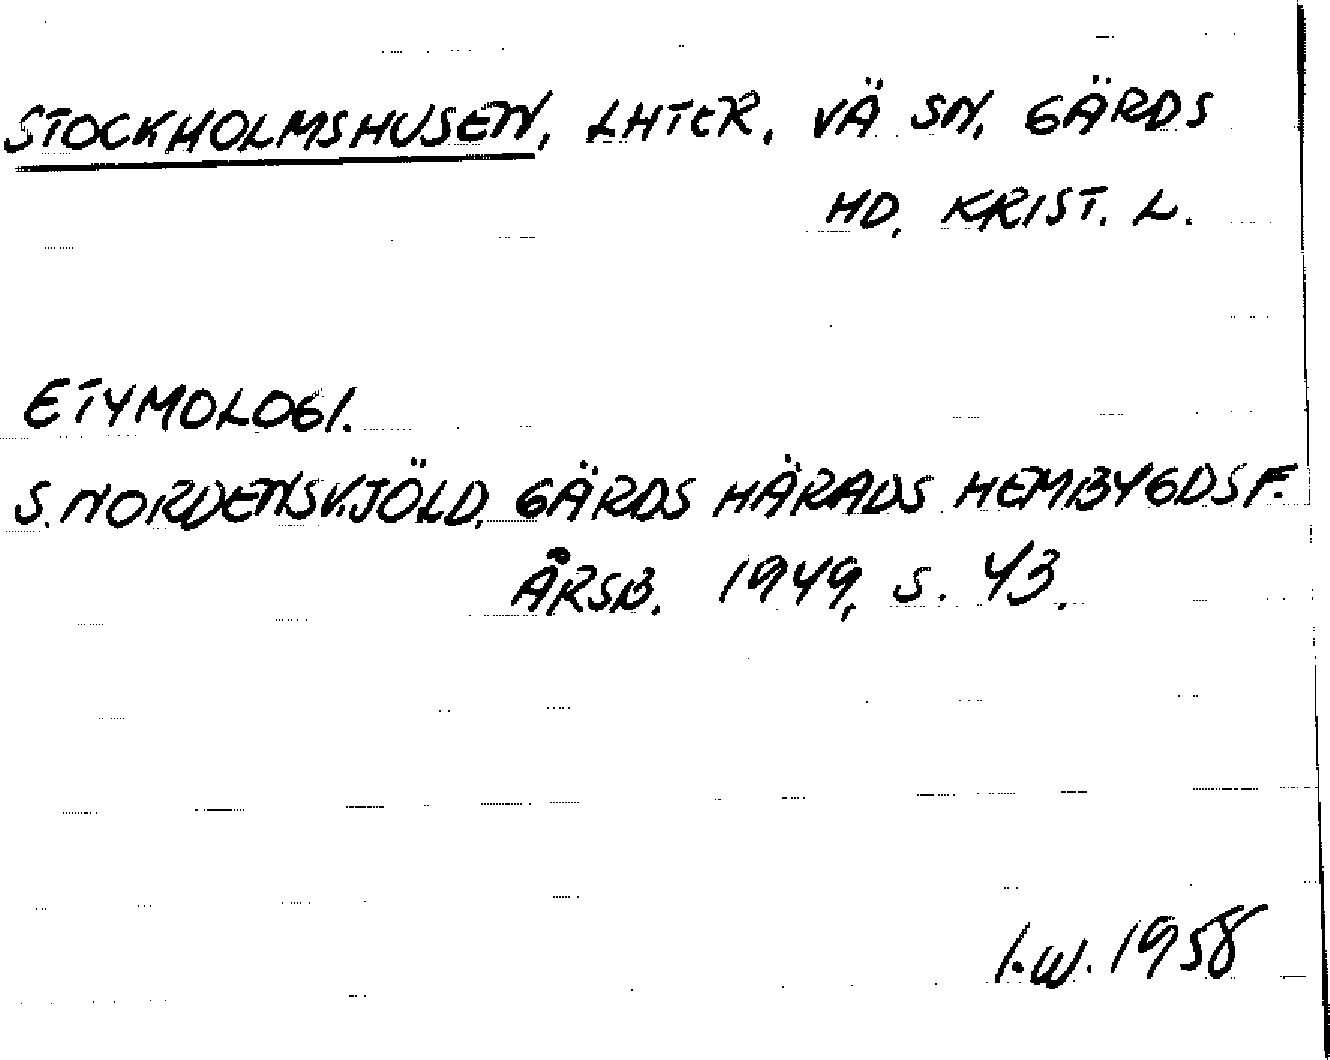 STOCKHOLMSHUSEN, LHTER, VÄ SN, GÄRDS
HD, KRIST. L.
ETYMOLOGI.
S. NORDENSKJÖLD, GÄRDS HÄRADS HEMBYGDSF.
ÅRSB. 1949, S. 43.
I.W. 1958